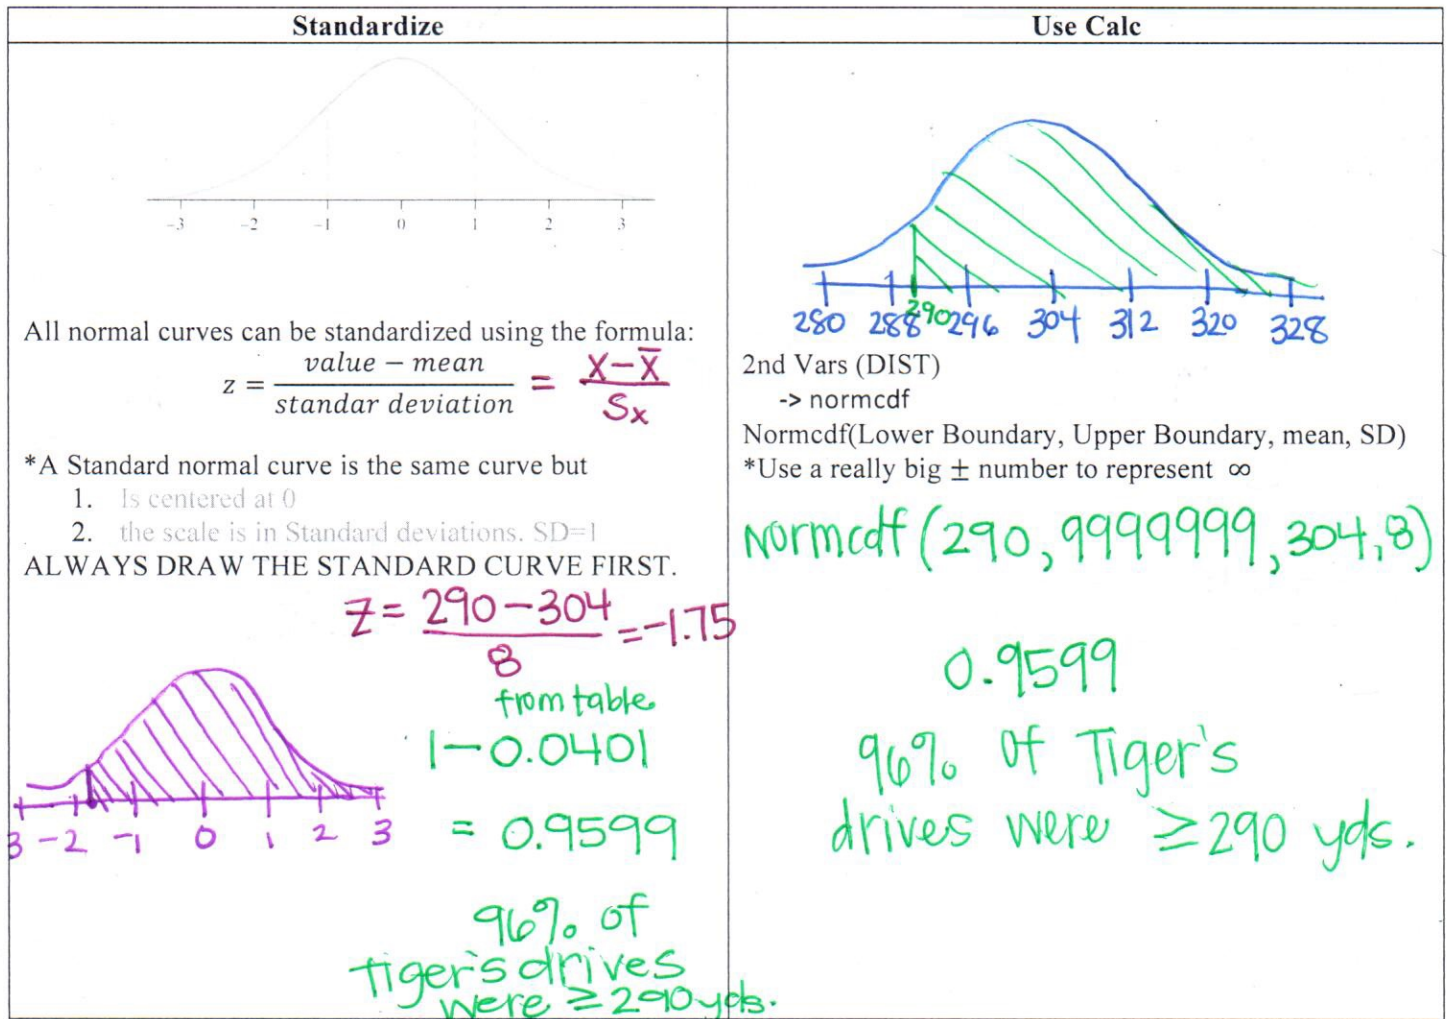 Standardize
-3 -2 -1 0 1 2 3
All normal curves can be standardized using the formula:
z = value − mean / standar deviation = X − X̄ / Sx
*A Standard normal curve is the same curve but
1. Is centered at 0
2. the scale is in Standard deviations. SD=1
ALWAYS DRAW THE STANDARD CURVE FIRST.
Z = 290 − 304 / 8 = −1.75
from table
1 − 0.0401
= 0.9599
3 -2 -1 0 1 2 3
96% of
tiger's drives
were ≥ 290 yds.
Use Calc
280 288 290 296 304 312 320 328
2nd Vars (DIST)
-> normcdf
Normcdf(Lower Boundary, Upper Boundary, mean, SD)
*Use a really big ± number to represent ∞
Normcdf (290, 9999999, 304, 8)
0.9599
96% of Tiger's
drives were ≥290 yds.